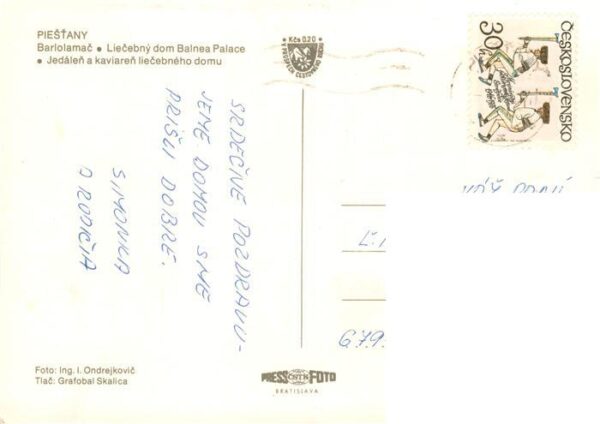 PIEŠŤANY
Barlolamač • Liečebný dom Balnea Palace
• Jedáleň a kaviareň liečebného domu
Kčs 0,20
30
ČESKOSLOVENSKO
SRDEČNE POZDRAVU-
JEME DOMOV SME
PRIŠLI DOBRE.
SIMONKA
A RODIČIA
679
Foto: Ing. I. Ondrejkovič
Tlač: Grafobal Skalica
PRESS ČSTK FOTO
BRATISLAVA